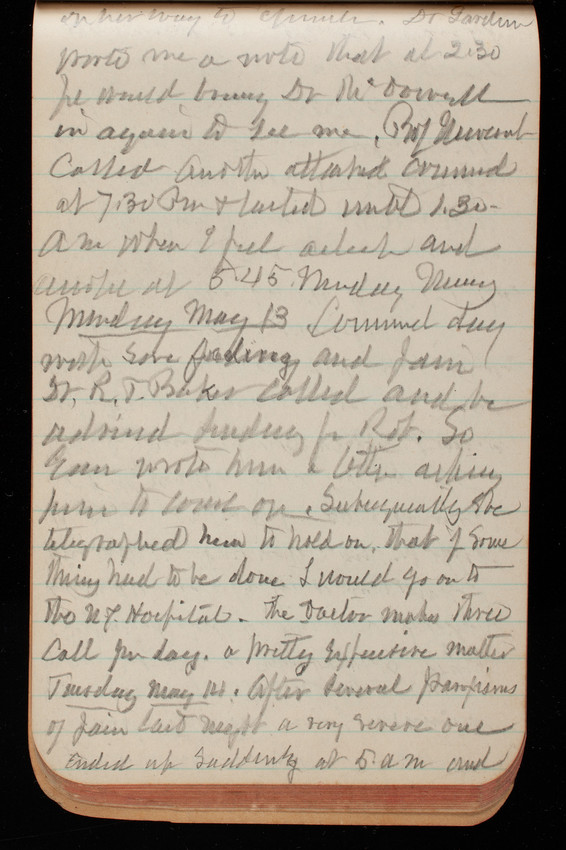 on her way to church. Dr Gardner
wrote me a note that at 2.30
he would bring Dr McDowell
in again to see me, Prof
Called Another attack
at 7.30 Pm & lasted until 1.30-
Am when I fell asleep and
awoke at 5.45. Monday
Monday May 13 day
with sore feeling and pain
Dr. R. T. Baker called and he
advised sending for Rob. So
wrote him a letter asking
him to come on. Subsequently she
telegraphed him to hold on, that if some
thing had to be done I would go on to
the N.Y. Hospital. The Doctor makes three
call per day. a pretty Expensive matter
Tuesday May 14. After several paroxisms
of pain last night a very severe one
Ended up suddenly at 5 a m and